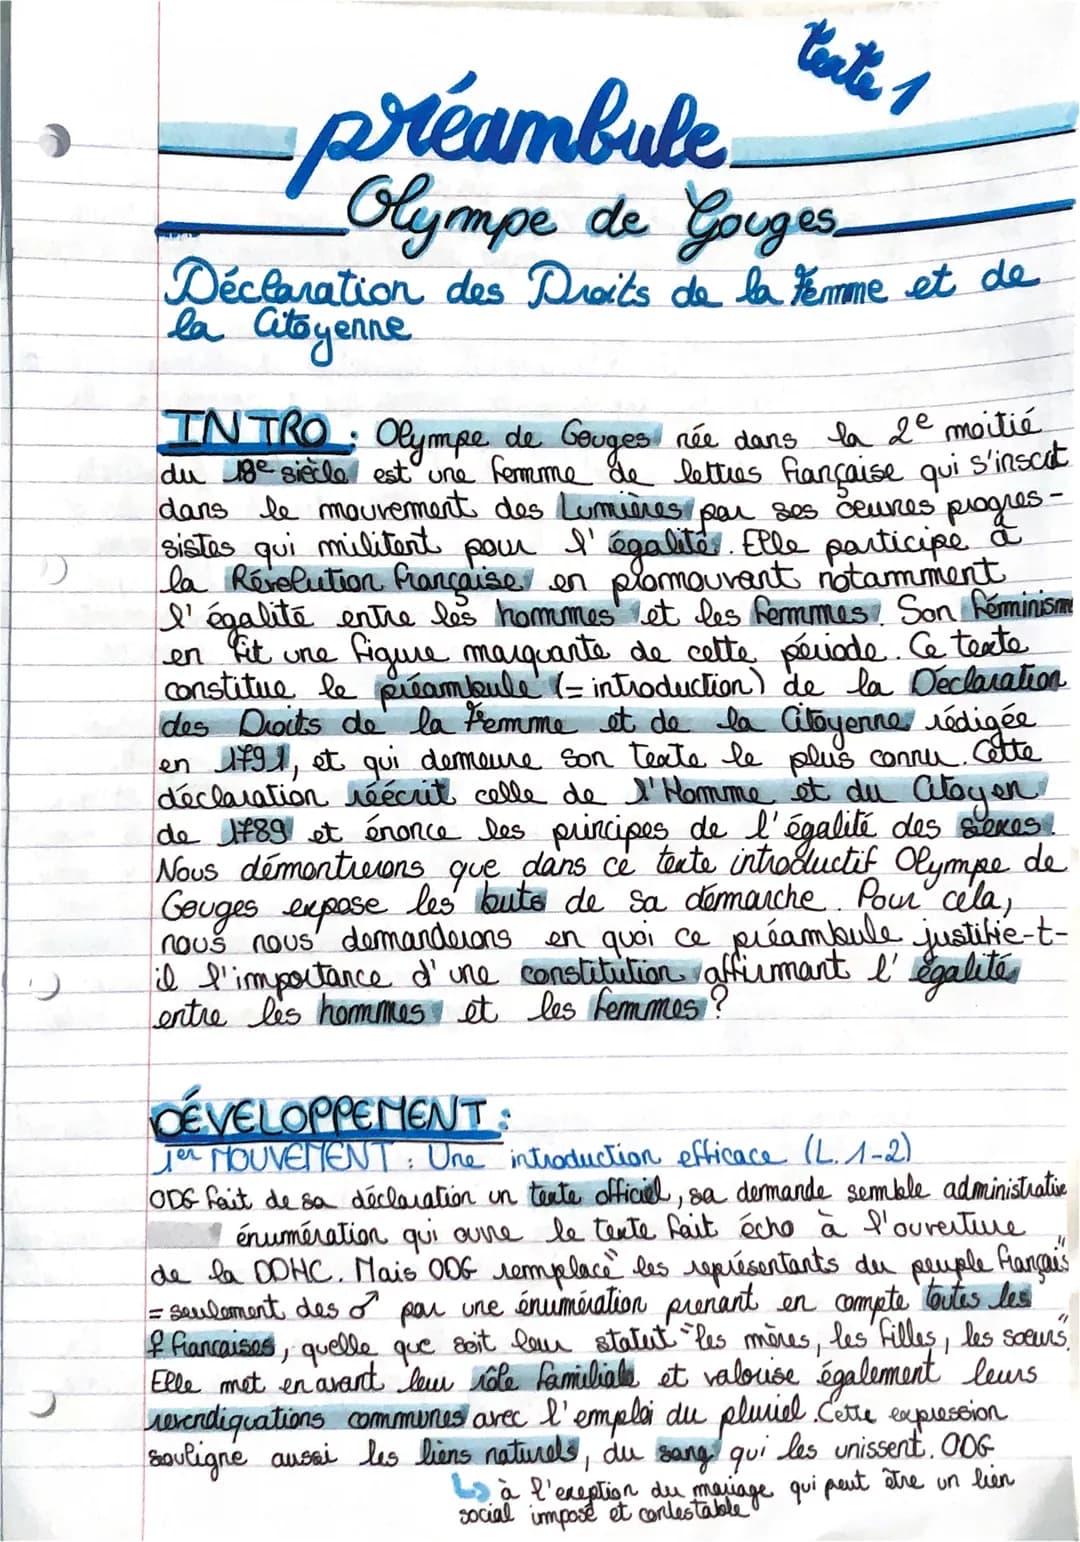 texte 1
préambule
Olympe de Gouges
Déclaration des Droits de la Femme et de
la Citoyenne
INTRO : Olympe de Gouges née dans la 2e moitié
du 18e siècle est une femme de lettres française qui s'inscrit
dans le mouvement des Lumières par ses œuvres progres-
sistes qui militent pour l'égalité. Elle participe à
la Révolution française en promouvant notamment
l'égalité entre les hommes et les femmes. Son féminisme
en fit une figure marquante de cette période. Ce texte
constitue le préambule (= introduction) de la Déclaration
des Droits de la Femme et de la Citoyenne rédigée
en 1791, et qui demeure son texte le plus connu. Cette
déclaration réécrit celle de l'Homme et du Citoyen
de 1789 et énonce les principes de l'égalité des sexes.
Nous démontrerons que dans ce texte introductif Olympe de
Gouges expose les buts de sa démarche. Pour cela,
nous nous demanderons en quoi ce préambule justifie-t-
il l'importance d'une constitution affirmant l'égalité
entre les hommes et les femmes ?
DÉVELOPPEMENT :
1er MOUVEMENT : Une introduction efficace (L. 1-2)
ODG fait de sa déclaration un texte officiel, sa demande semble administrative
énumération qui ouvre le texte fait écho à l'ouverture
de la DDHC. Mais ODG remplace "les représentants du peuple français"
= seulement des ♂ par une énumération prenant en compte toutes les
♀ françaises, quelle que soit leur statut "les mères, les filles, les sœurs".
Elle met en avant leur rôle familiale et valorise également leurs
revendiquations communes avec l'emploi du pluriel. Cette expression
souligne aussi les liens naturels, du sang qui les unissent. ODG
↳ à l'exeption du mariage qui peut être un lien
social imposé et contestable